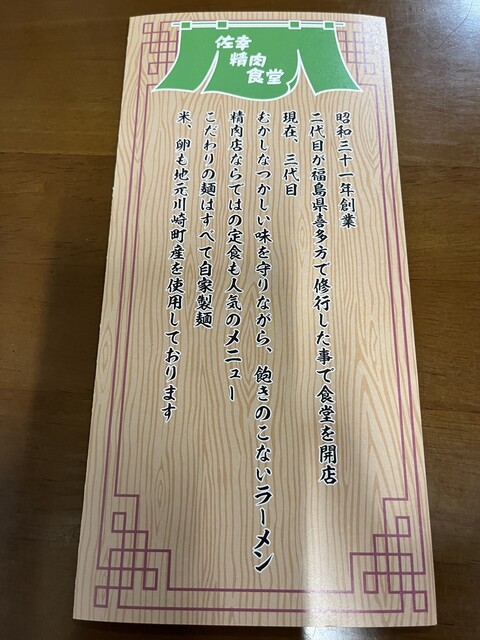 佐幸
精肉
食堂
昭和三十一年創業
二代目が福島県喜多方で修行した事で食堂を開店
現在、三代目
むかしなつかしい味を守りながら、飽きのこないラーメン
精肉店ならではの定食も人気のメニュー
こだわりの麺はすべて自家製麺
米、卵も地元川崎町産を使用しております